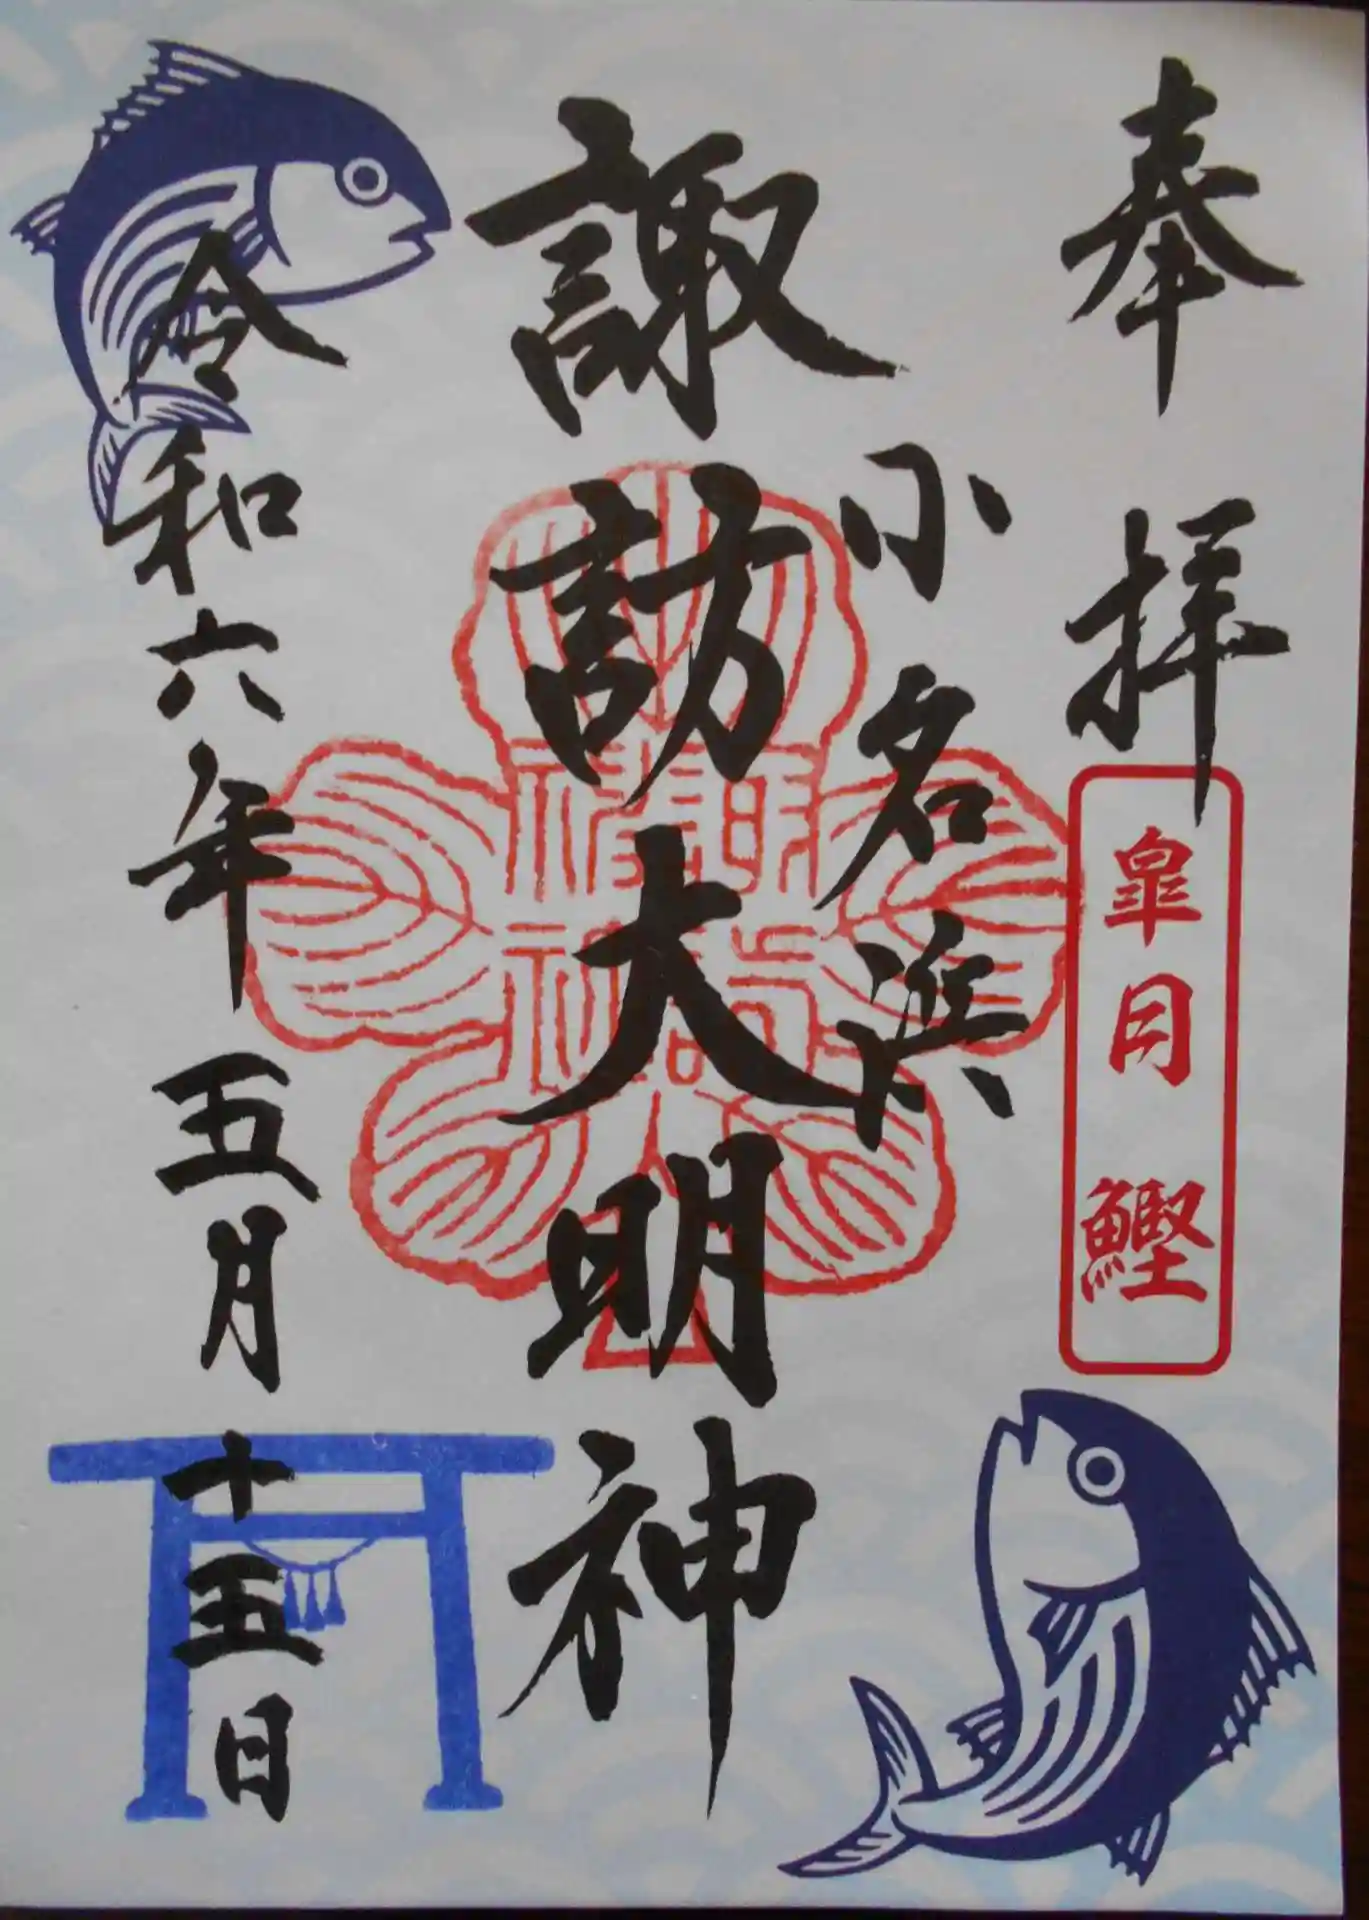 奉拝
皐月 鰹
小名浜
諏訪大明神
令和六年 五月十五日